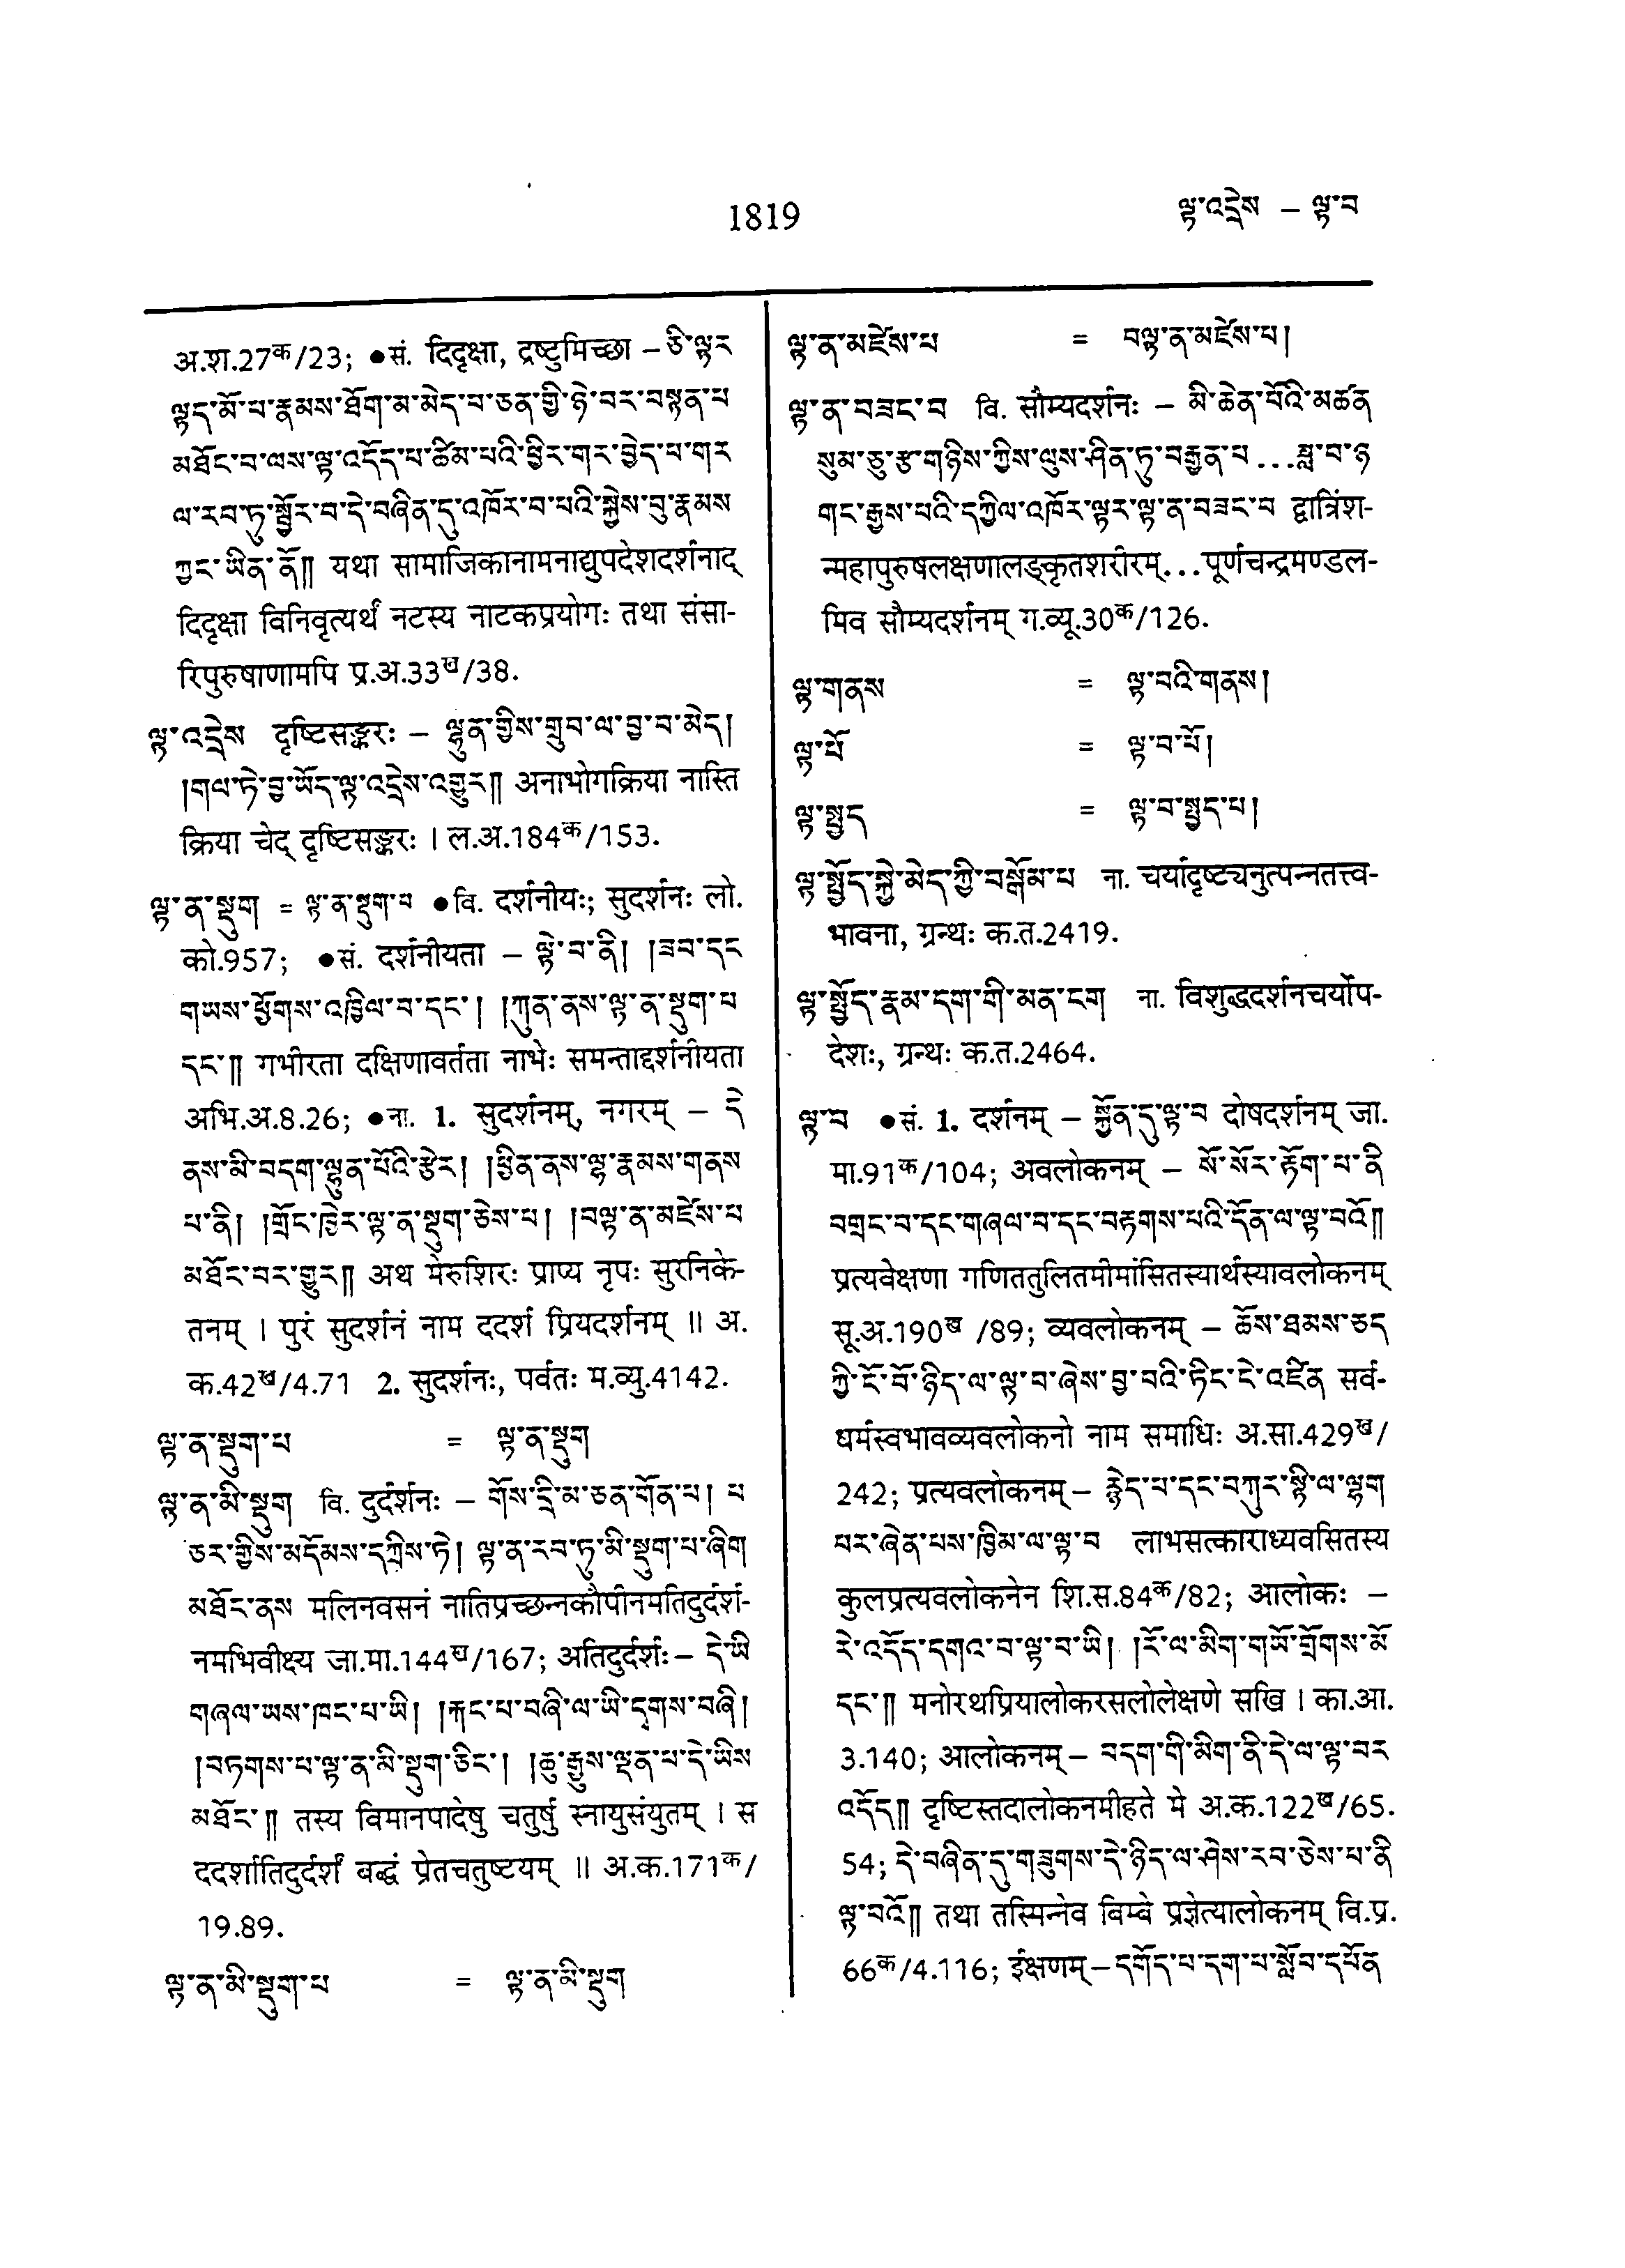 1819
ལྟ་འདྲེས – ལྟ་བ
अ.श.27क/23; ●सं. दिदृक्षा, द्रष्टुमिच्छा – ཅི་ལྟར
ལྟད་མོ་བ་རྣམས་ཐོག་མ་མེད་པ་ཅན་གྱི་ཉེ་བར་བསྟན་པ
མཐོང་བ་ལས་ལྟ་འདོད་པ་ཚིམ་པའི་ཕྱིར་གར་བྱེད་པ་གར
ལ་རབ་ཏུ་སྦྱོར་བ་དེ་བཞིན་དུ་འཁོར་བ་པའི་སྐྱེས་བུ་རྣམས
ཀྱང་ཡིན་ནོ༎ यथा सामाजिकानामनाद्युपदेशदर्शनाद्
दिदृक्षा विनिवृत्यर्थं नटस्य नाटकप्रयोगः तथा संसा-
रिपुरुषाणामपि प्र.अ.33ख/38.
ལྟ་འདྲེས दृष्टिसङ्करः – ལྷུན་གྱིས་གྲུབ་ལ་བྱ་བ་མེད།
།གལ་ཏེ་བྱ་ཡོད་ལྟ་འདྲེས་འགྱུར༎ अनाभोगक्रिया नास्ति
क्रिया चेद् दृष्टिसङ्करः । ल.अ.184क/153.
ལྟ་ན་སྡུག = ལྟ་ན་སྡུག་པ ●वि. दर्शनीयः; सुदर्शनः लो.
को.957; ●सं. दर्शनीयता – ལྟེ་བ་ནི། །ཟབ་དང
གཡས་ཕྱོགས་འཁྱིལ་བ་དང་། །ཀུན་ནས་ལྟ་ན་སྡུག་པ
དང་༎ गभीरता दक्षिणावर्तता नाभेः समन्ताद्दर्शनीयता
अभि.अ.8.26; ●ना. 1. सुदर्शनम्, नगरम् – དེ
ནས་མི་བདག་ལྷུན་པོའི་རྩེར། །ཕྱིན་ནས་ལྷ་རྣམས་གནས
པ་ནི། །གྲོང་ཁྱེར་ལྟ་ན་སྡུག་ཅེས་པ། །བལྟ་ན་མཛེས་པ
མཐོང་བར་གྱུར༎ अथ मेरुशिरः प्राप्य नृपः सुरनिके-
तनम् । पुरं सुदर्शनं नाम ददर्श प्रियदर्शनम् ॥ अ.
क.42ख/4.71 2. सुदर्शनः, पर्वतः म.व्यु.4142.
ལྟ་ན་སྡུག་པ = ལྟ་ན་སྡུག
ལྟ་ན་མི་སྡུག वि. दुर्दर्शनः – གོས་དྲི་མ་ཅན་གོན་པ། པ
ཅར་གྱིས་མདོམས་དཀྲིས་ཏེ། ལྟ་ན་རབ་ཏུ་མི་སྡུག་པ་ཞིག
མཐོང་ནས मलिनवसनं नातिप्रच्छन्नकौपीनमतिदुर्दर्श-
नमभिवीक्ष्य जा.मा.144ख/167; अतिदुर्दर्शः – དེ་ཡི
གཞལ་ཡས་ཁང་པ་ཡི། །རྐང་པ་བཞི་ལ་ཡི་དྭགས་བཞི།
།བཏགས་པ་ལྟ་ན་མི་སྡུག་ཅིང་། །ཆུ་རྒྱུས་ལྡན་པ་དེ་ཡིས
མཐོང་༎ तस्य विमानपादेषु चतुर्षु स्नायुसंयुतम् । स
ददर्शातिदुर्दर्शं बद्धं प्रेतचतुष्टयम् ॥ अ.क.171क/
19.89.
ལྟ་ན་མི་སྡུག་པ = ལྟ་ན་མི་སྡུག
ལྟ་ན་མཛེས་པ = བལྟ་ན་མཛེས་པ།
ལྟ་ན་བཟང་བ वि. सौम्यदर्शनः – མི་ཆེན་པོའི་མཚན
སུམ་ཅུ་རྩ་གཉིས་ཀྱིས་ལུས་ཤིན་ཏུ་བརྒྱན་པ...ཟླ་བ་ཉ
གང་རྒྱས་པའི་དཀྱིལ་འཁོར་ལྟར་ལྟ་ན་བཟང་བ द्वात्रिंश-
न्महापुरुषलक्षणालङ्कृतशरीरम्...पूर्णचन्द्रमण्डल-
मिव सौम्यदर्शनम् ग.व्यू.30क/126.
ལྟ་གནས = ལྟ་བའི་གནས།
ལྟ་པོ = ལྟ་བ་པོ།
ལྟ་སྤྱད = ལྟ་བ་སྤྱད་པ།
ལྟ་སྤྱོད་སྐྱེ་མེད་ཀྱི་བསྒོམ་པ ना. चर्यादृष्ट्यनुत्पन्नतत्त्व-
भावना, ग्रन्थः क.त.2419.
ལྟ་སྤྱོད་རྣམ་དག་གི་མན་ངག ना. विशुद्धदर्शनचर्योप-
देशः, ग्रन्थः क.त.2464.
ལྟ་བ ●सं. 1. दर्शनम् – སྐྱོན་དུ་ལྟ་བ दोषदर्शनम् जा.
मा.91क/104; अवलोकनम् – སོ་སོར་རྟོག་པ་ནི
བགྲང་བ་དང་གཞལ་བ་དང་བརྟགས་པའི་དོན་ལ་ལྟ་བའོ༎
प्रत्यवेक्षणा गणिततुलितमीमांसितस्यार्थस्यावलोकनम्
सू.अ.190ख /89; व्यवलोकनम् – ཆོས་ཐམས་ཅད
ཀྱི་ངོ་བོ་ཉིད་ལ་ལྟ་བ་ཞེས་བྱ་བའི་ཏིང་ངེ་འཛིན सर्व-
धर्मस्वभावव्यवलोकनो नाम समाधिः अ.सा.429ख/
242; प्रत्यवलोकनम् – རྙེད་པ་དང་བཀུར་སྟི་ལ་ལྷག
པར་ཞེན་པས་ཁྱིམ་ལ་ལྟ་བ लाभसत्काराध्यवसितस्य
कुलप्रत्यवलोकनेन शि.स.84क/82; आलोकः –
རེ་འདོད་དགའ་བ་ལྟ་བ་ཡི། །རོ་ལ་མིག་གཡོ་གྲོགས་མོ
དང་༎ मनोरथप्रियालोकरसलोलेक्षणे सखि । का.आ.
3.140; आलोकनम् – བདག་གི་མིག་ནི་དེ་ལ་ལྟ་བར
འདོད༎ दृष्टिस्तदालोकनमीहते मे अ.क.122ख/65.
54; དེ་བཞིན་དུ་གཟུགས་དེ་ཉིད་ལ་ཤེས་རབ་ཅེས་པ་ནི
ལྟ་བའོ༎ तथा तस्मिन्नेव विम्बे प्रज्ञेत्यालोकनम् वि.प्र.
66क/4.116; ईक्षणम् – དགོད་པ་དག་པ་སློབ་དཔོན